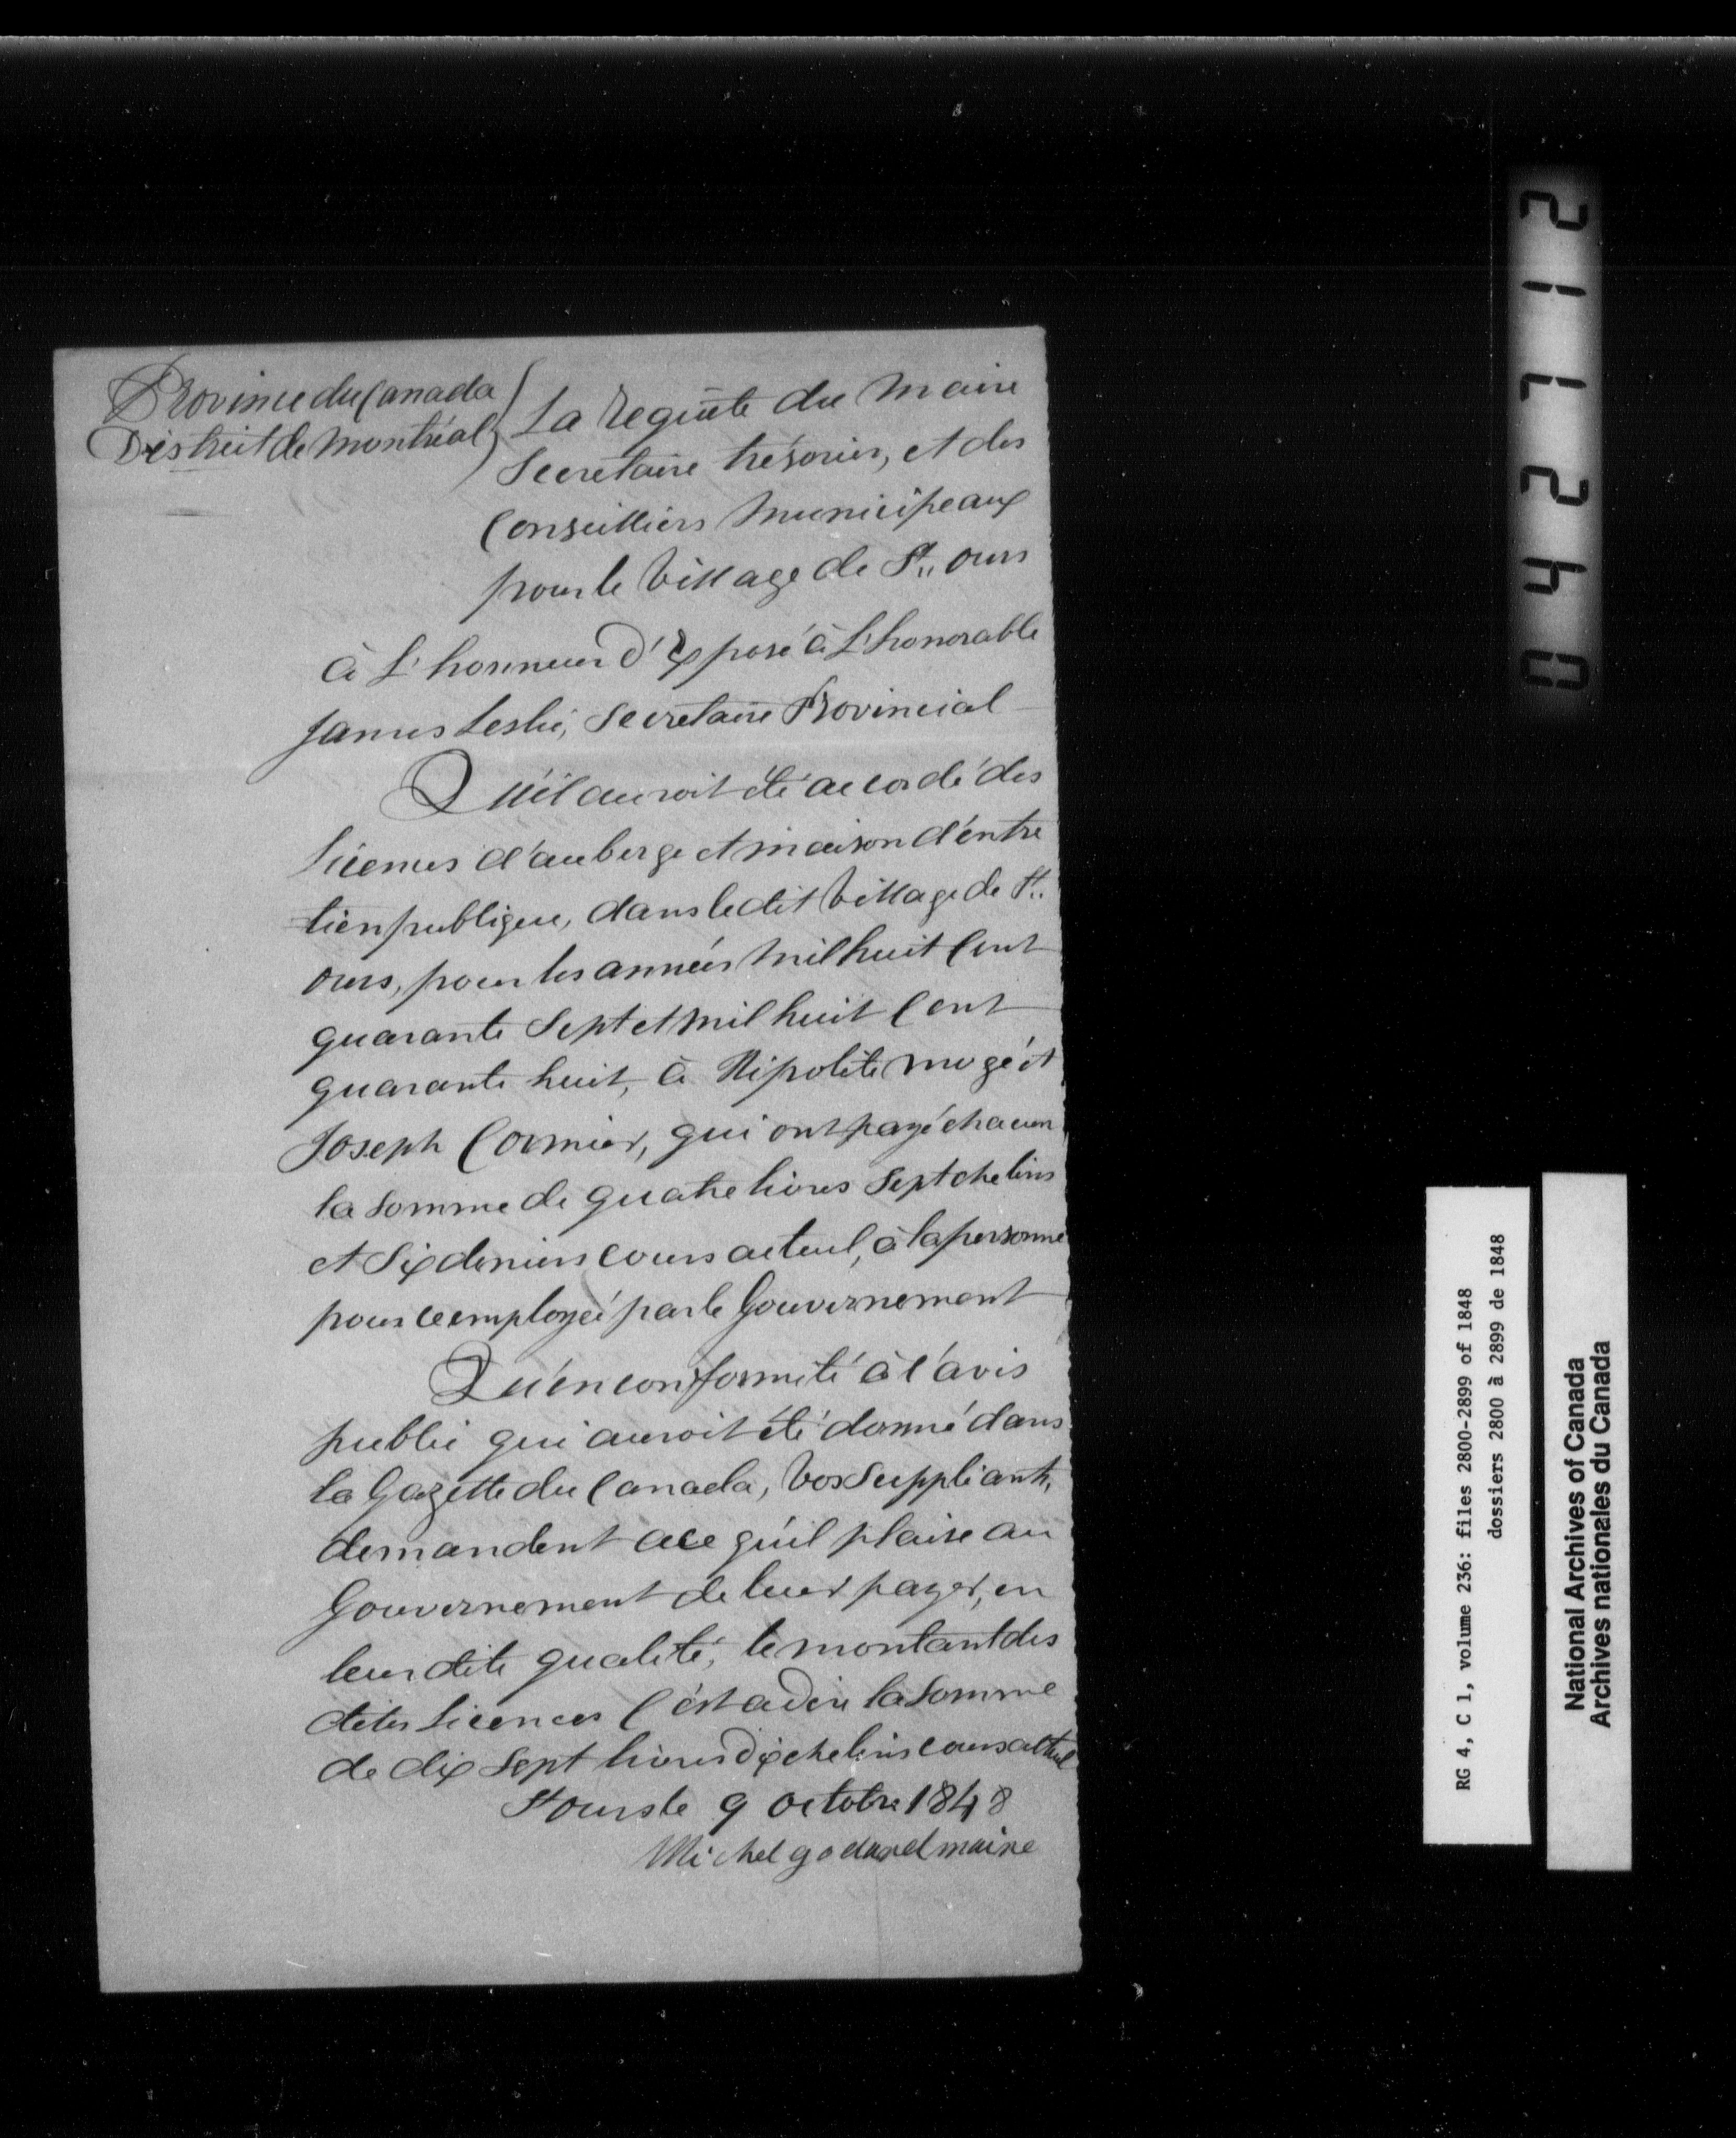 Province du Canada
District de Montréal
La requête du Maire
Secretaire trésorier, et des
Conseilliers Municipeaux
pour le Village de St. ours
à L'honneur d'Exposé à L'honorable
James Leslie, Secretaire Provincial
Qu'il auroit été accordé des
Licences d'auberge et maison d'entre
tien publique, dans le dit Village de St.
ours, pour les années Mil huit Cent
quarante Sept et Mil huit Cent
quarante huit, à Hipolite Mogé et
Joseph Cormier, qui ont payé chacun
la Somme de quatre livres Sept chelins
et Six deniers cours actuel, à la personne
pour ce employée par le Gouvernement
Qu'en conformité à l'avis
public qui auroit été donné dans
la Gazette du Canada, Vos Suppliants,
demandent a ce qu'il plaise au
Gouvernement de leur payer, en
leur dite qualité, le montant des
dites Licences C'est a dire la Somme
de dix Sept livres dix chelins cours actuel
St ours le 9 octobre 1848
Michel godard maire
042712
RG 4, C 1, volume 236: files 2800-2899 of 1848
dossiers 2800 à 2899 de 1848
National Archives of Canada
Archives nationales du Canada